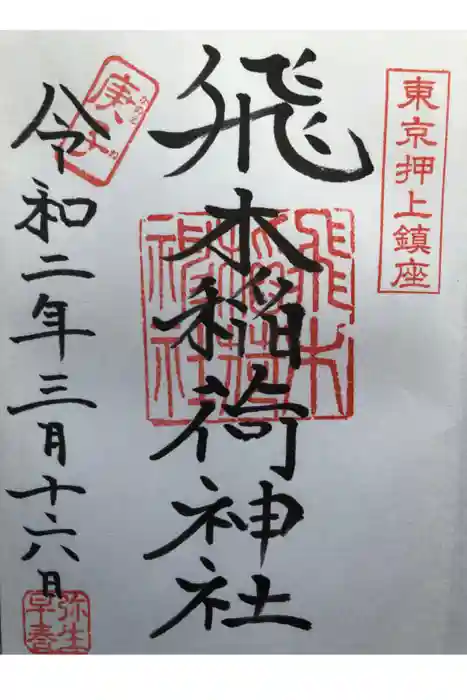 東京押上鎮座
飛木稲荷神社
飛木
神社
庚子
令和二年三月十六日
弥生
早春